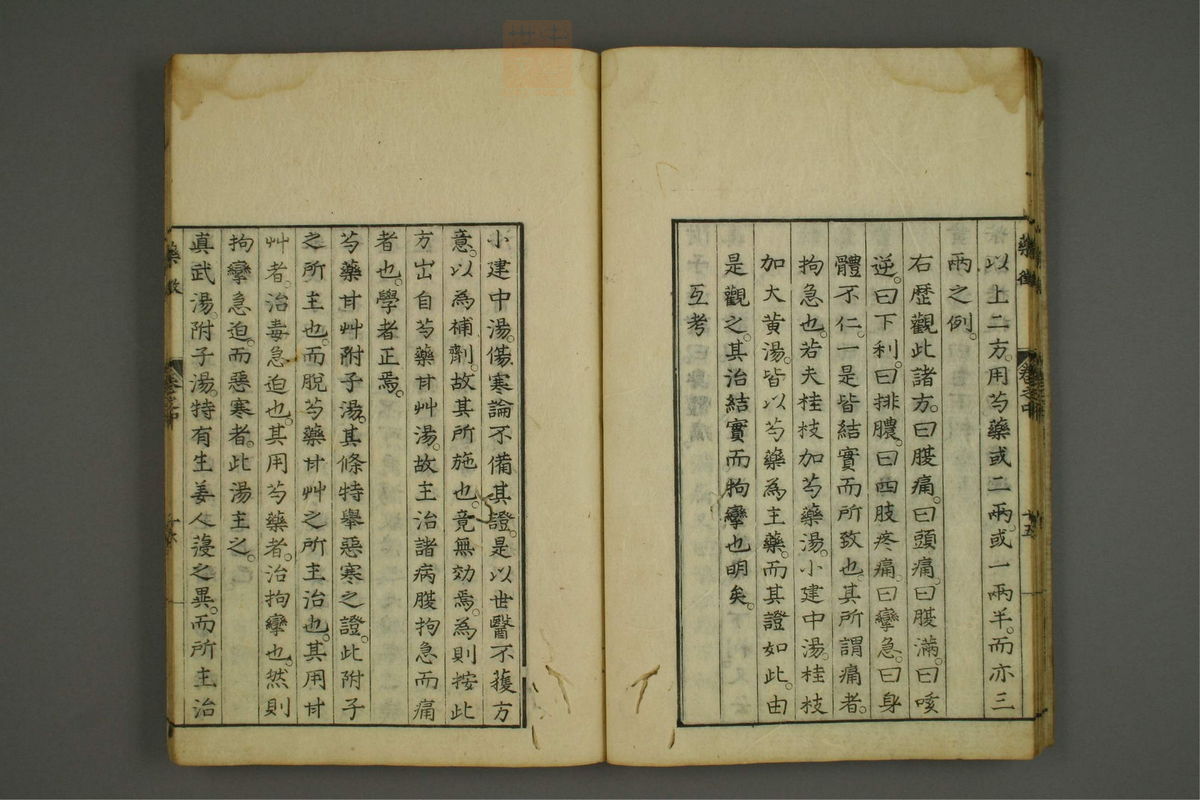 以上二方。用芍藥或二兩。或一兩半。而亦三
兩之例。
右歷觀此諸方。曰腹痛。曰頭痛。曰腹滿。曰咳
逆。曰下利。曰排膿。曰四肢疼痛。曰攣急。曰身
體不仁。一是皆結實而所致也。其所謂痛者。
拘急也。若夫桂枝加芍藥湯。小建中湯。桂枝
加大黃湯。皆以芍藥為主藥。而其證如此。由
是觀之。其治結實而拘攣也明矣。
互考
藥徵
卷之中
十五
小建中湯。傷寒論不備其證。是以世醫不獲方
意。以為補劑。故其所施也。竟無効焉。為則按此
方出自芍藥甘艸湯。故主治諸病腹拘急而痛
者也。學者正焉。
芍藥甘艸附子湯。其條特舉惡寒之證。此附子
之所主也。而脫芍藥甘艸之所主治也。其用甘
艸者。治毒急迫也。其用芍藥者。治拘攣也。然則
拘攣急迫。而惡寒者。此湯主之。
真武湯。附子湯。特有生姜人薓之異。而所主治
藥徵
卷之中